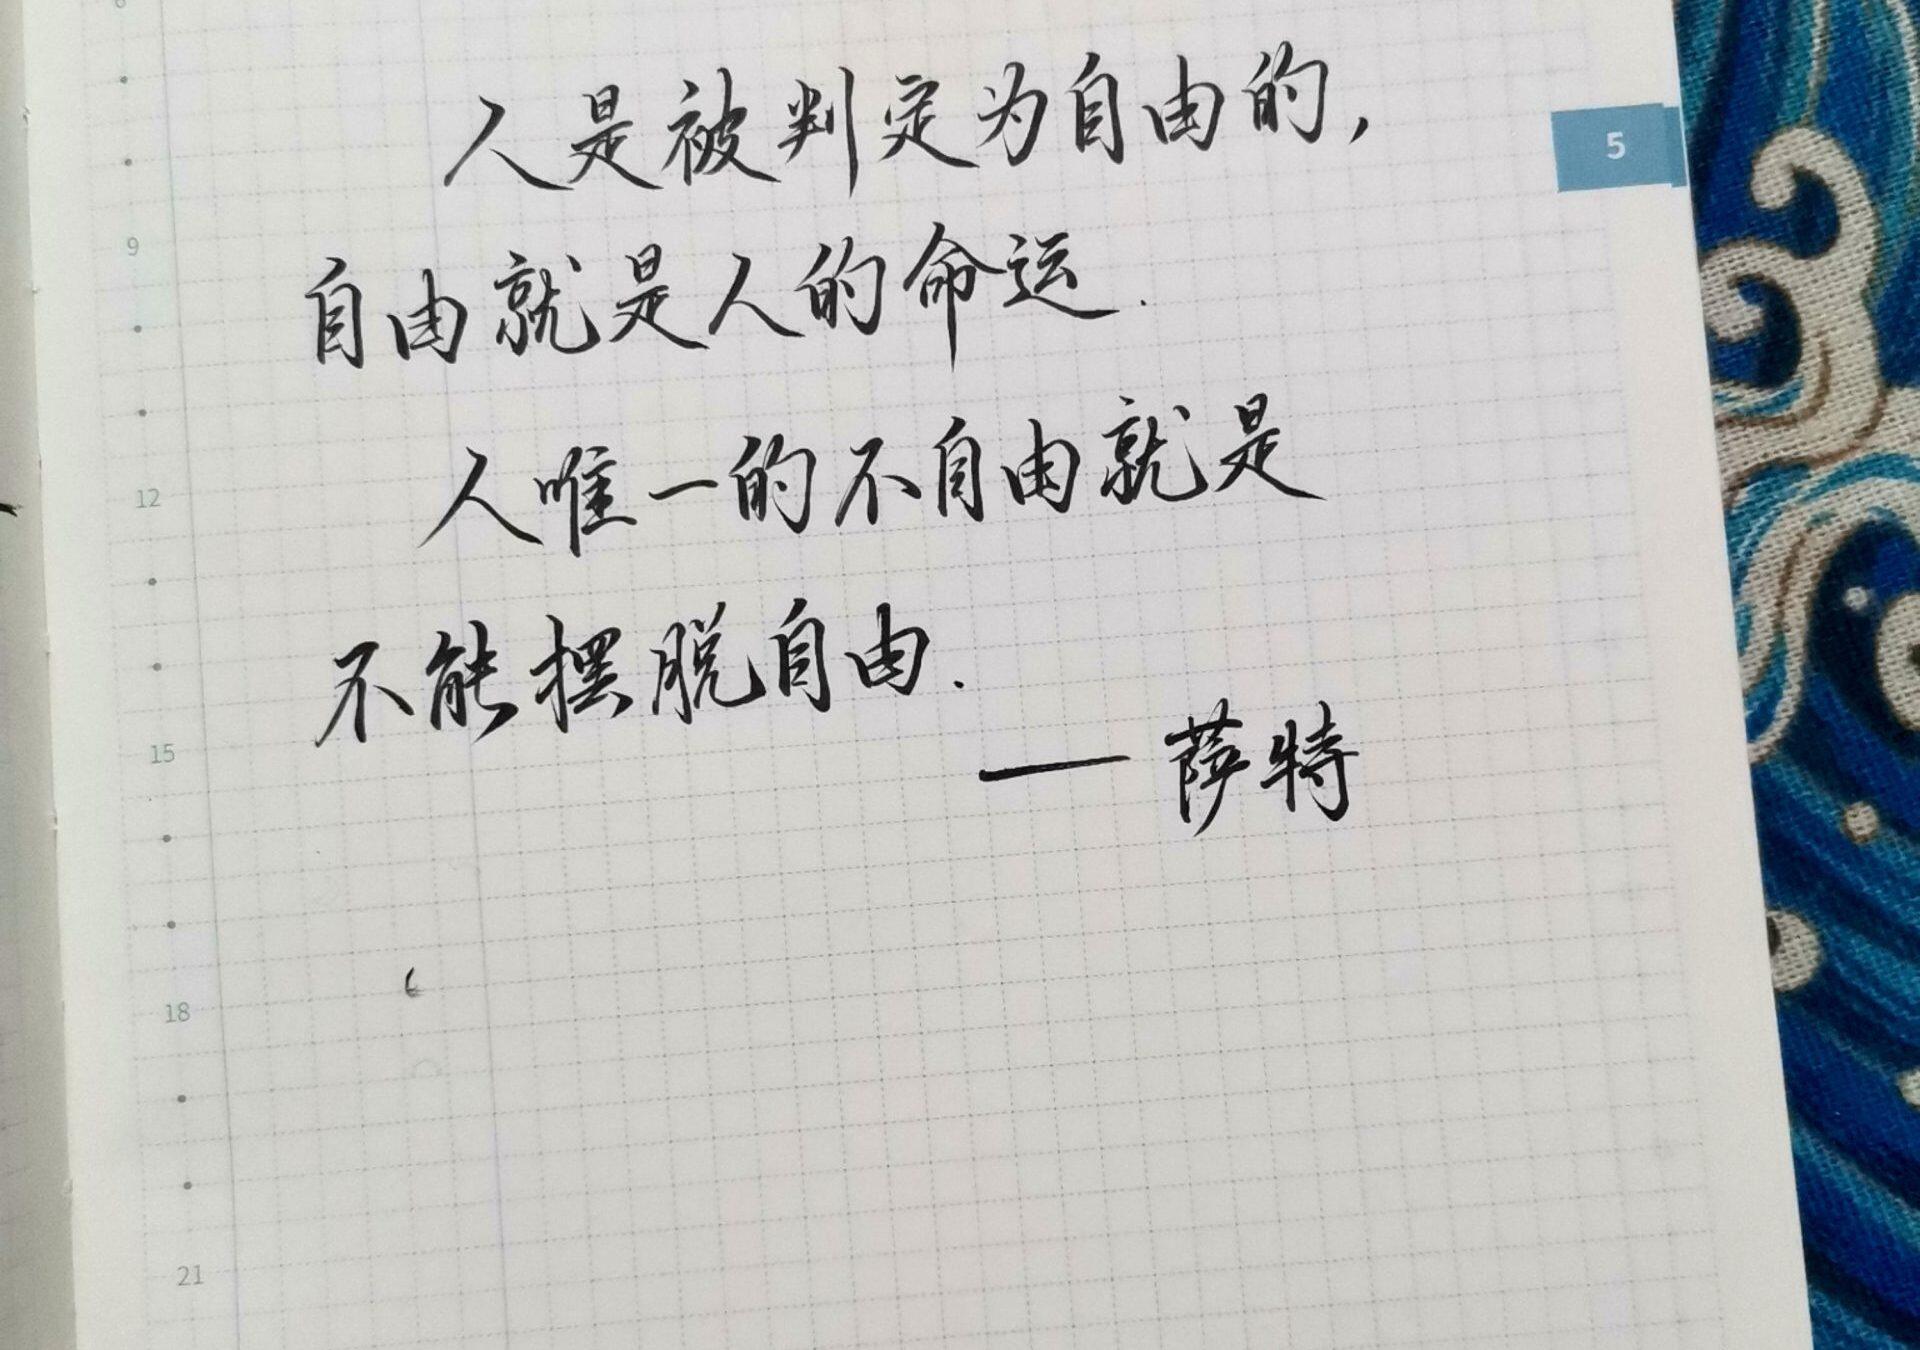 6
人是被判定为自由的，
5
9
自由就是人的命运.
12
人唯一的不自由就是
不能摆脱自由.
15
——萨特
18
21